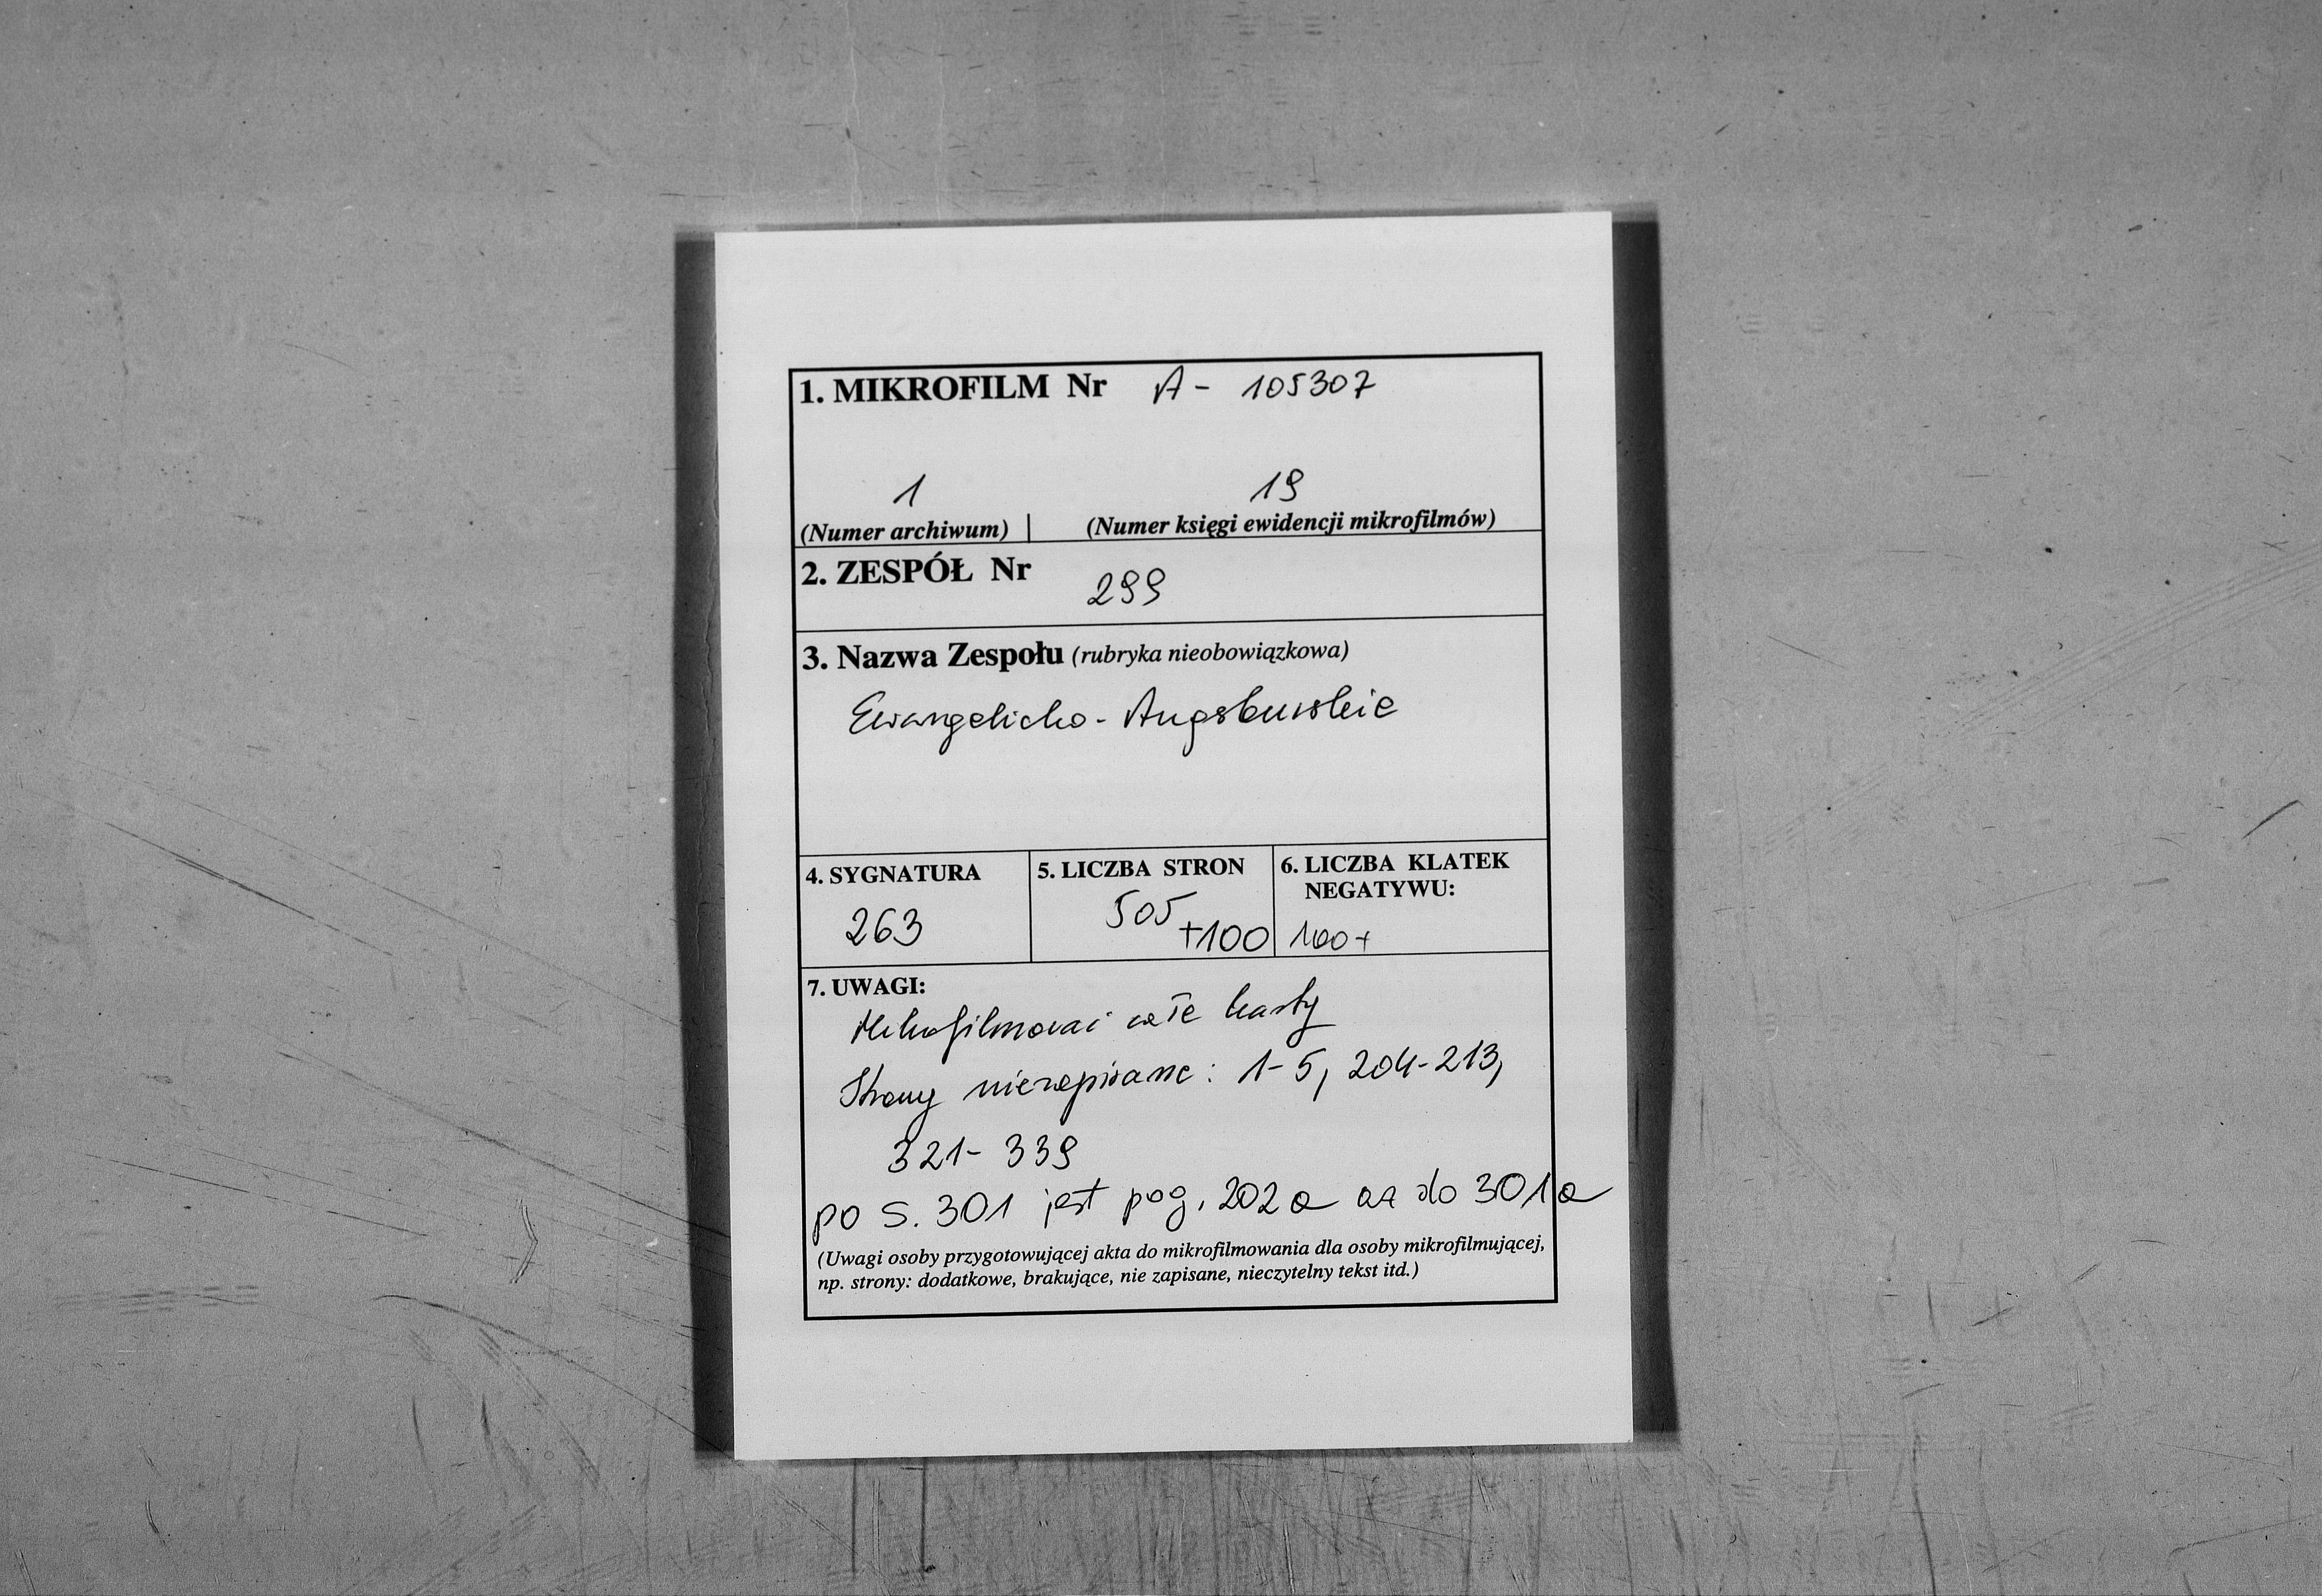 1. MIKROFILM Nr A - 105307
1 19
(Numer archiwum) | (Numer księgi ewidencji mikrofilmów)
2. ZESPÓŁ Nr 299
3. Nazwa Zespołu (rubryka nieobowiązkowa)
Ewangelicko - Augsburskie
4. SYGNATURA
263
5. LICZBA STRON
505
+100
6. LICZBA KLATEK
NEGATYWU:
100+
7. UWAGI:
Mikrofilmować całe karty
Strony niezapisane: 1-5, 204-213,
321-339
po s. 301 jest pag. 202a aż do 301a
(Uwagi osoby przygotowującej akta do mikrofilmowania dla osoby mikrofilmującej,
np. strony: dodatkowe, brakujące, nie zapisane, nieczytelny tekst itd.)